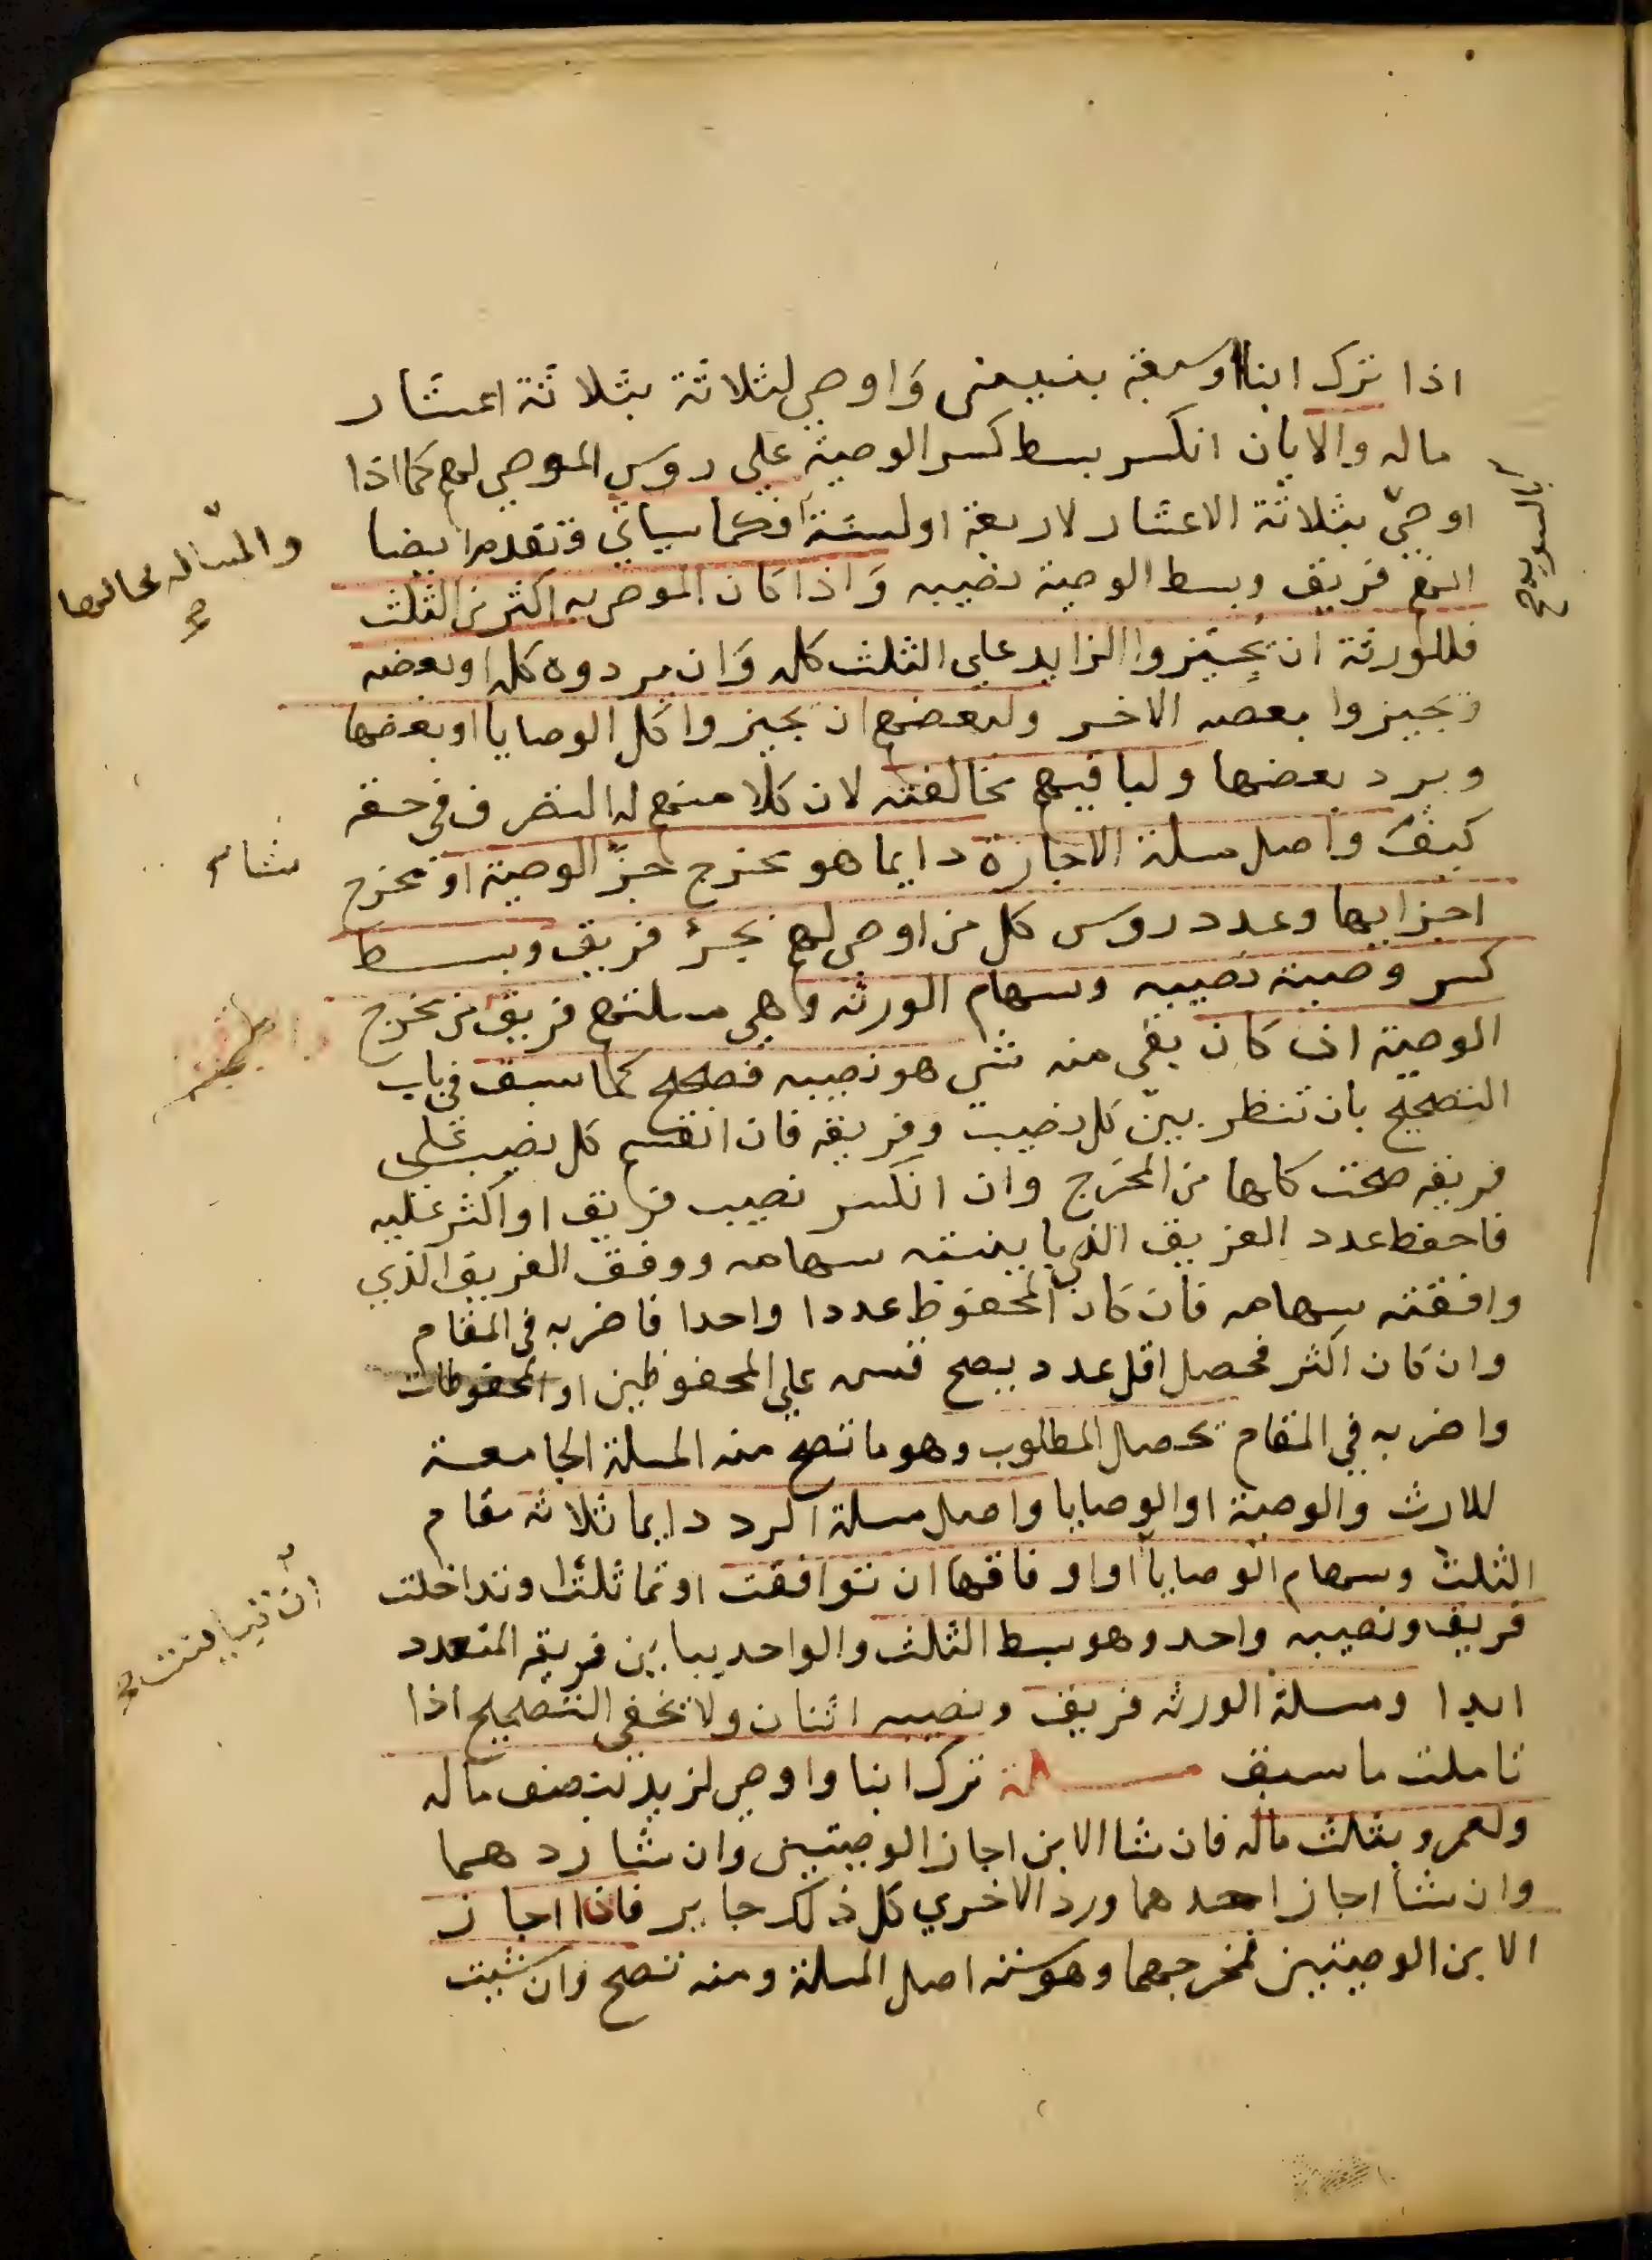 اذا ترك ابنا او سبعة بنين وَاوصي لثلاثة بثلاثة اعشار
ماله والا بان انكسر بسط كسر الوصية علي روس الموصي لهم كما اذا
اوصيّ بثلاثة الاعشار لاربعة او لستة فكما سياتي وتقدم ايضا
انهم فريق وبسط الوصية نصيبه وَاذا كان الموصي به اكثر من الثلث
فللورثة ان يُجِيْزوا الزايد علي الثلث كله وَان يردوه كله او بعضه
ويجيزوا بعضه الاخر ولبعضهم ان يجيزوا كل الوصايا او بعضها
ويرد بعضها ولباقيهم مخالفته لان كلا منهم له التصرف في حقه
كيف واصل مسلة الاجازة دايما هو مخرج جزّ الوصية او مخرج
اجزايها وعدد روس كل من اوصي لهم بجزء فريق وبسط
كسر وصيته نصيبه وسهام الورثه وهي مسلتهم فريق من مخرج
الوصية ان كان بقي منه شي هو نصيبه فصحح كما سبق في باب
التصحيح بان تنظر بين كل نصيب وفريقه فان انقسم كل نصيب على
فريقه صحت كلها من المخرج وان انكسر نصيب فريق او اكثر عليه
فاحفظ عدد الفريق الذي باينته سهامه ووفق الفريق الذي
وافقته سهامه فان كان المحفوظ عددا واحدا فاضربه في المقام
وان كان اكثر فحصل اقل عدد يصح قسمه علي المحفوظين او المحفوظات
واضربه في المقام تحصل المطلوب وهو ما تصح منه المسلة الجامعة
للارث والوصية او الوصايا واصل مسلة الرد دايما ثلاثه مقام
الثلث وسهام الوصايا او اوفاقها ان توافقت او تماثلت او تداخلت
فريق ونصيبه واحد وهو بسط الثلث والواحد يباين فريقه المتعدد
ابدا ومسلة الورثه فريق ونصيبه اثنان ولا تخفي التصحيح اذا
تاملت ما سبق مسلة ترك ابنا واوصي لزيد بنصف ماله
ولعمرو بثلث ماله فان شا الابن اجاز الوصيتين وان شا ردهما
وان شا اجاز احدهما ورد الاخري كل ذلك جايز فاذا اجاز
الابن الوصيتين فمخرجهما وهو ستة اصل المسلة ومنه تصح وان شيت
بالسويه صح
والمساله بحالها
صح
شاء
ان تباينت صح